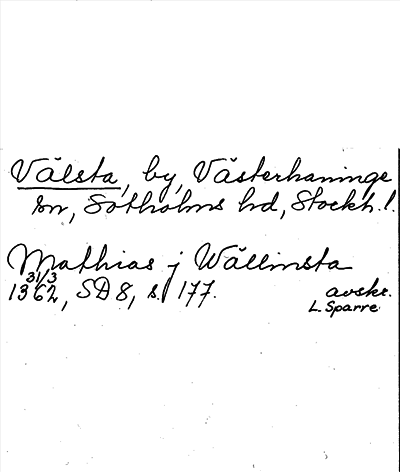 Välsta, by, Västerhaninge
sn, Sotholms hd, Stockh. l.
Mathias j Wällinsta
31/3
1362, SD 8, s. 177.
avskr.
L. Sparre